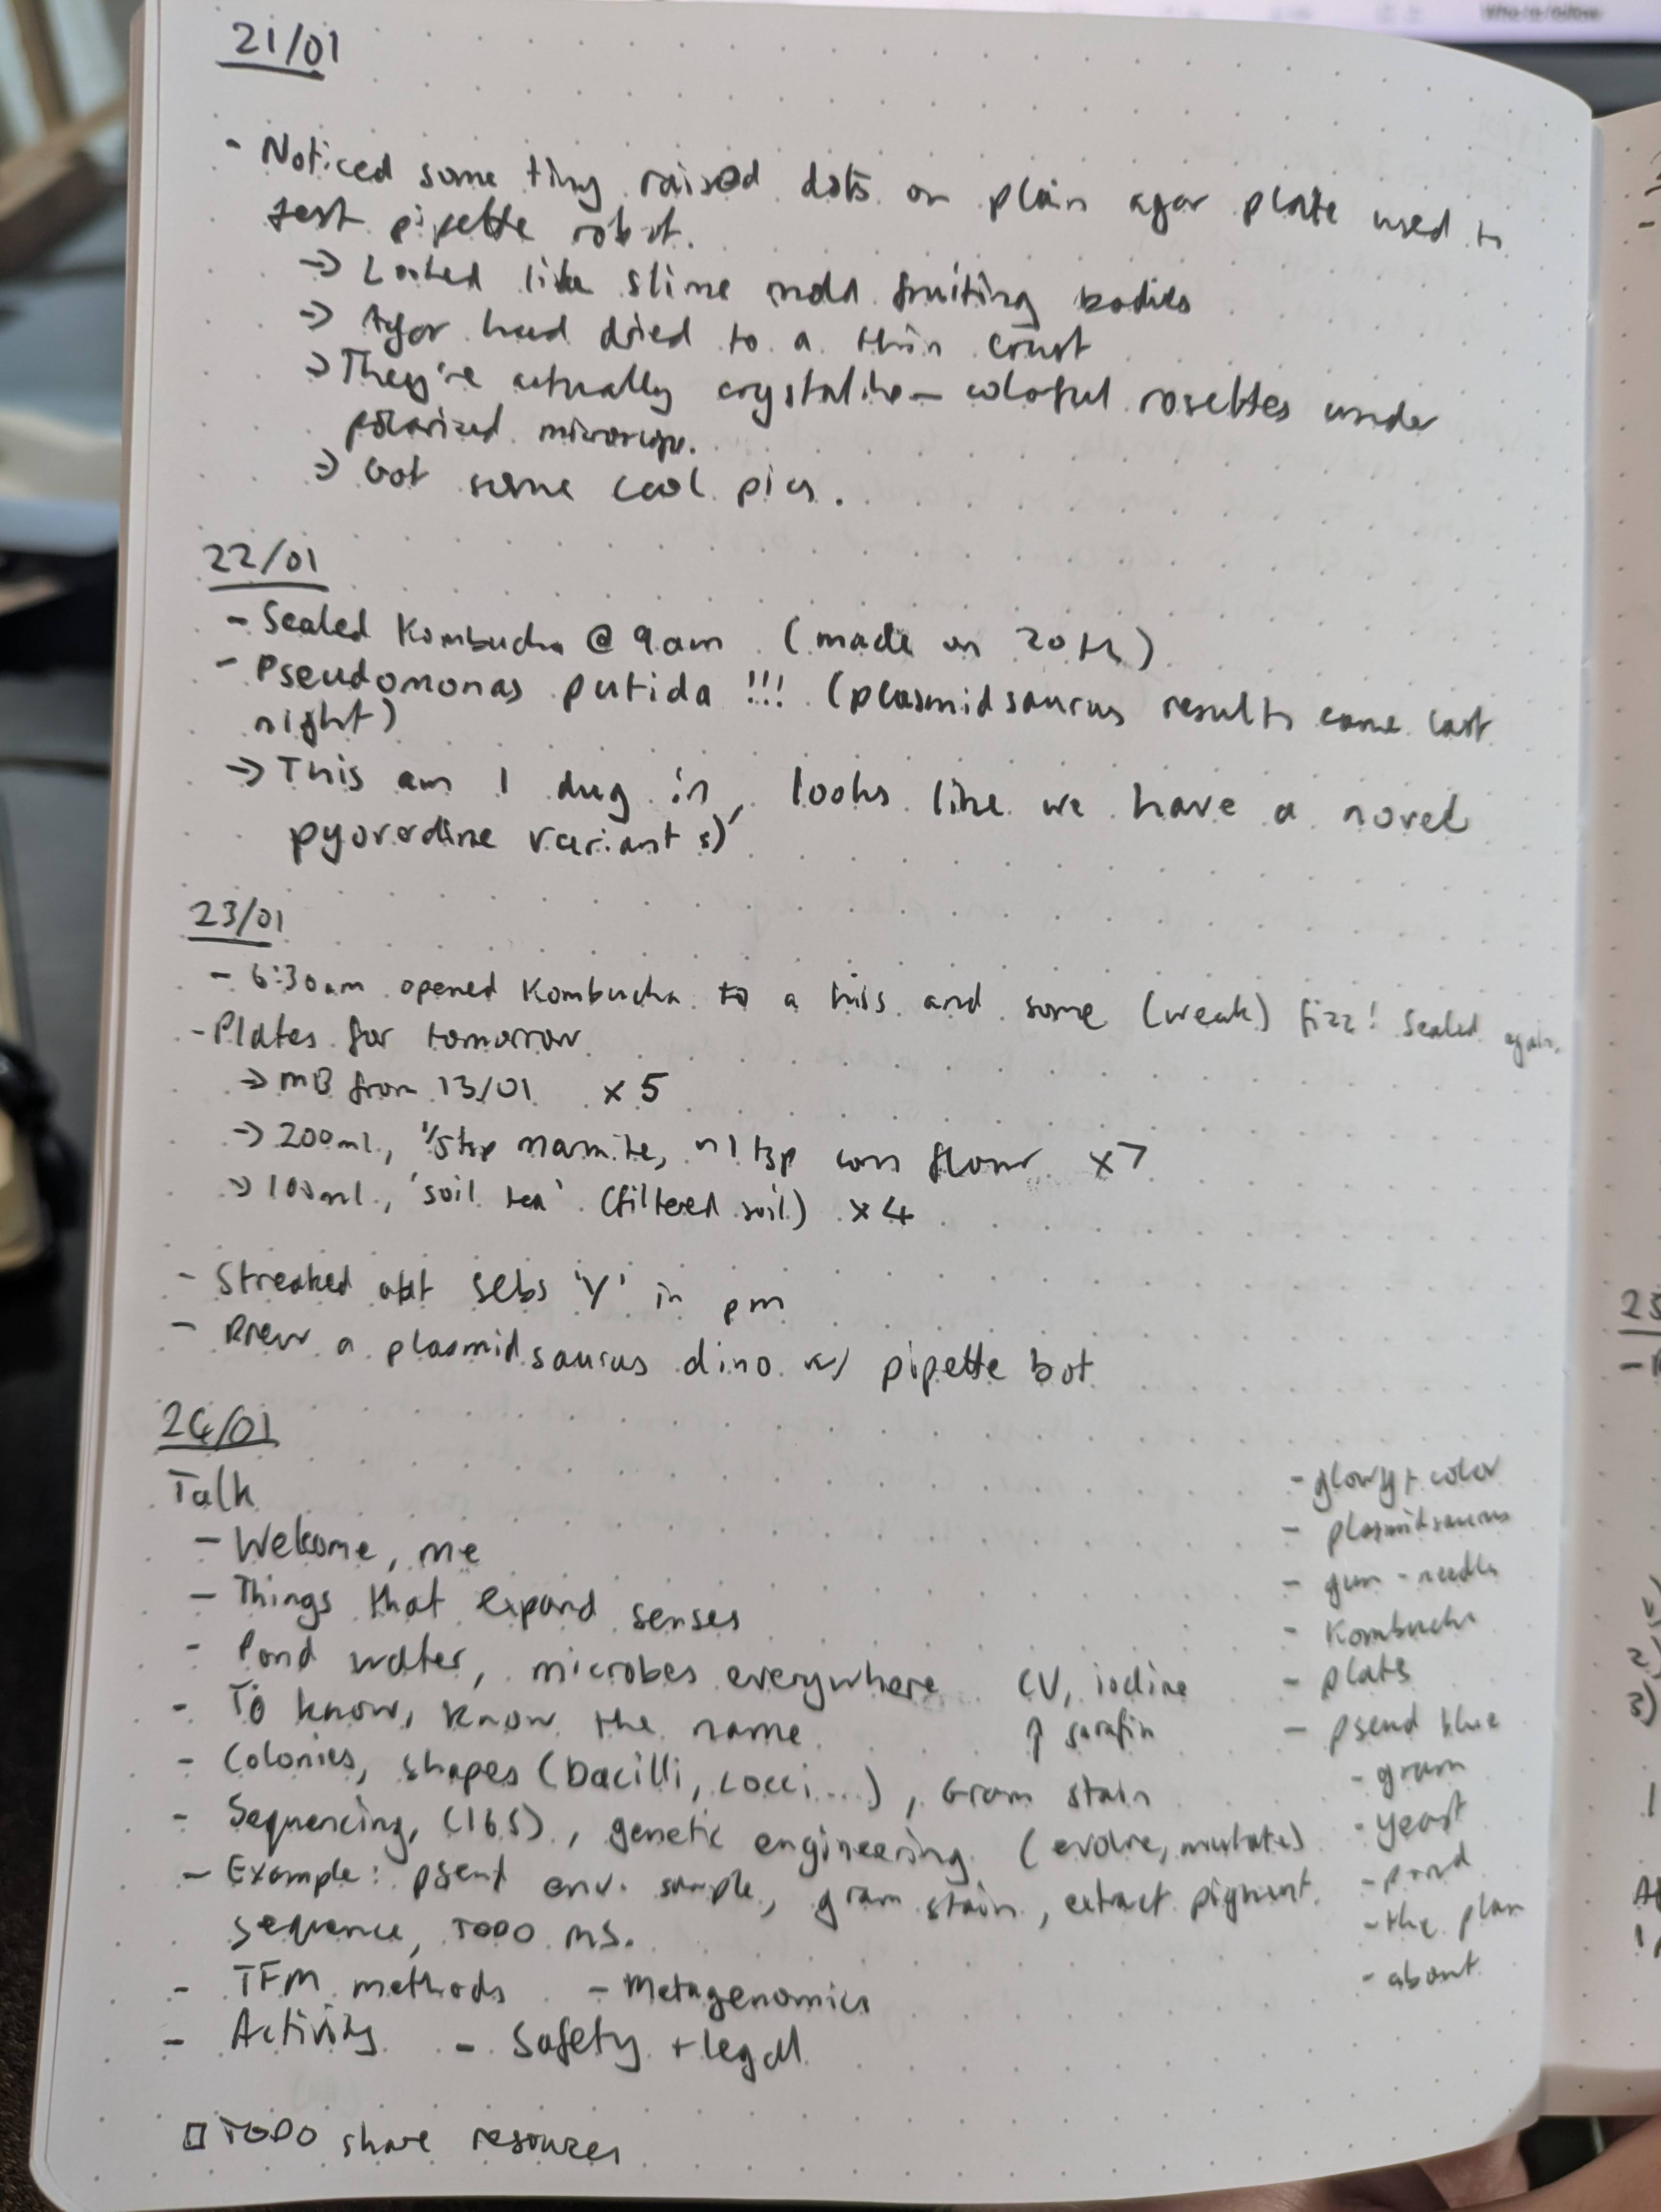 21/01
- Noticed some tiny raised dots on plain agar plate used to
test pipette robot.
→ Looked like slime mold fruiting bodies
→ Agar had dried to a thin crust
→ They're actually crystaline – colorful rosettes under
polarized microscope.
→ Got some cool pics.
22/01
- Sealed Kombucha @ 9am (made on 20th)
- Pseudomonas putida !!! (plasmidsaurus results came last
night)
→ This am I dug in, looks like we have a novel
pyoverdine variant :)
23/01
- 6:30am opened Kombucha to a hiss and some (weak) fizz! Sealed again.
- Plates for tomorrow
→ MB from 13/01 x 5
→ 200ml, 1/5 tsp marmite, ~1 tsp corn flour x7
→ 100ml, 'soil tea' (filtered soil) x 4
- Streaked out sebs 'Y' in pm
- Drew a plasmidsaurus dino w/ pipette bot
24/01
Talk
- Welcome, me
- Things that expand senses
- Pond water, microbes everywhere CV, iodine
- To know, know the name ↑ safafin
- Colonies, shapes (bacilli, cocci...), Gram stain
- Sequencing, (16S), genetic engineering (evolve, mutate)
- Example: pseud env. sample, gram stain, extract pigment.
sequence, TODO MS.
- TFM methods - Metagenomics
- Activity - Safety + legal
TODO share resources
- glowy + color
- plasmidsaurus
- gum - needle
- Kombucha
- plates
- pseud blue
- gram
- yeast
- pond
- the plan
- about